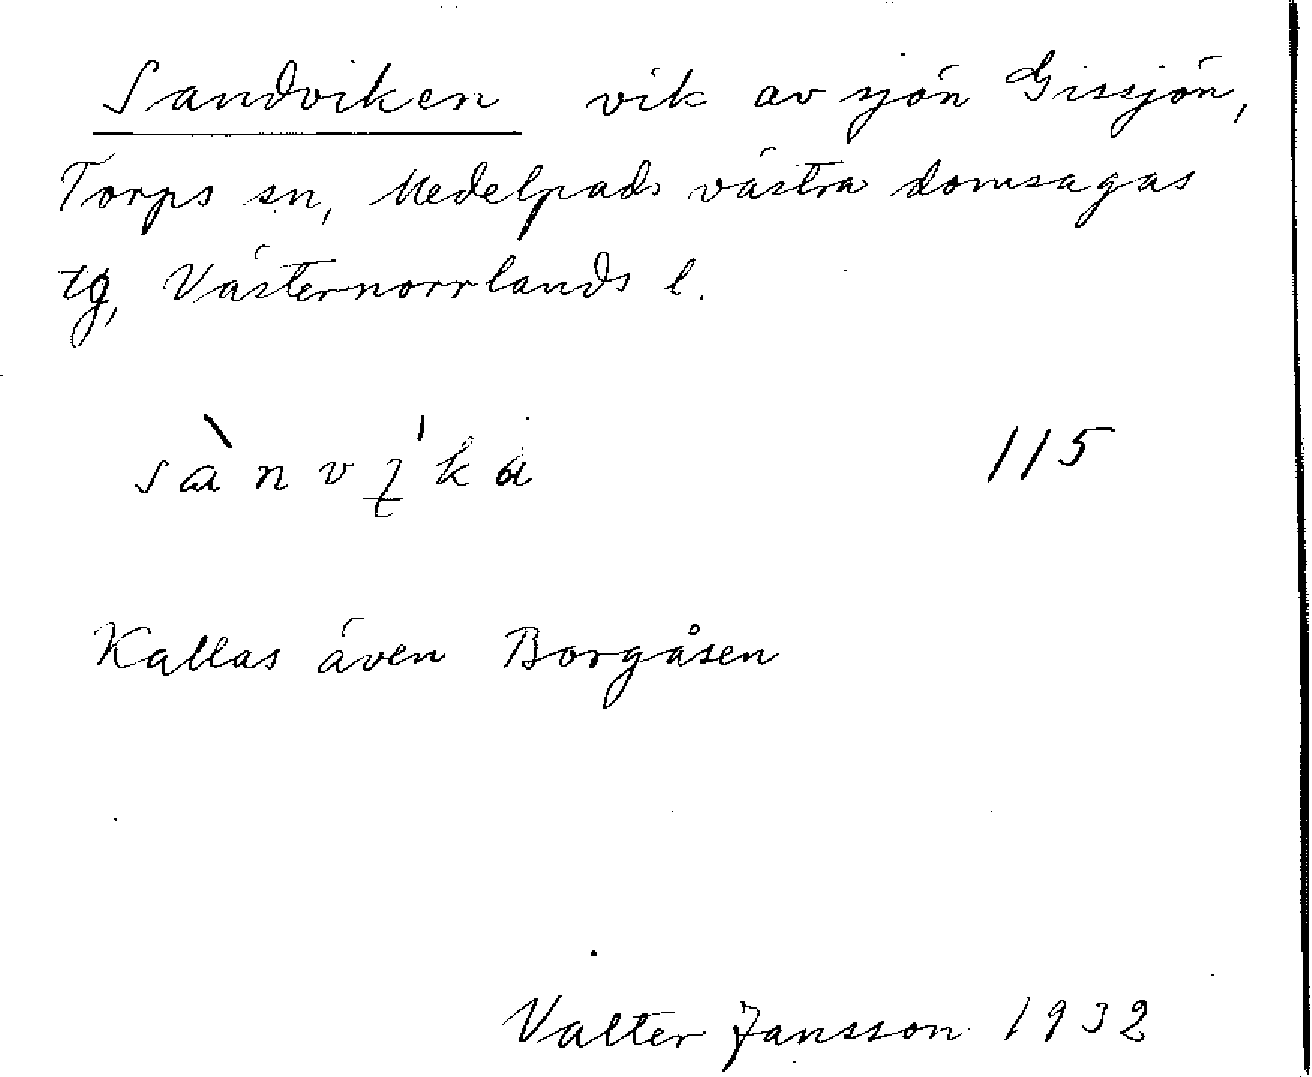 Sandviken vik av sjön Gissjön,
Torps sn, Medelpads västra domsagas
tg, Västernorrlands l.
sànvi̱'ka 115
Kallas även Borgåsen
Valter Jansson 1932